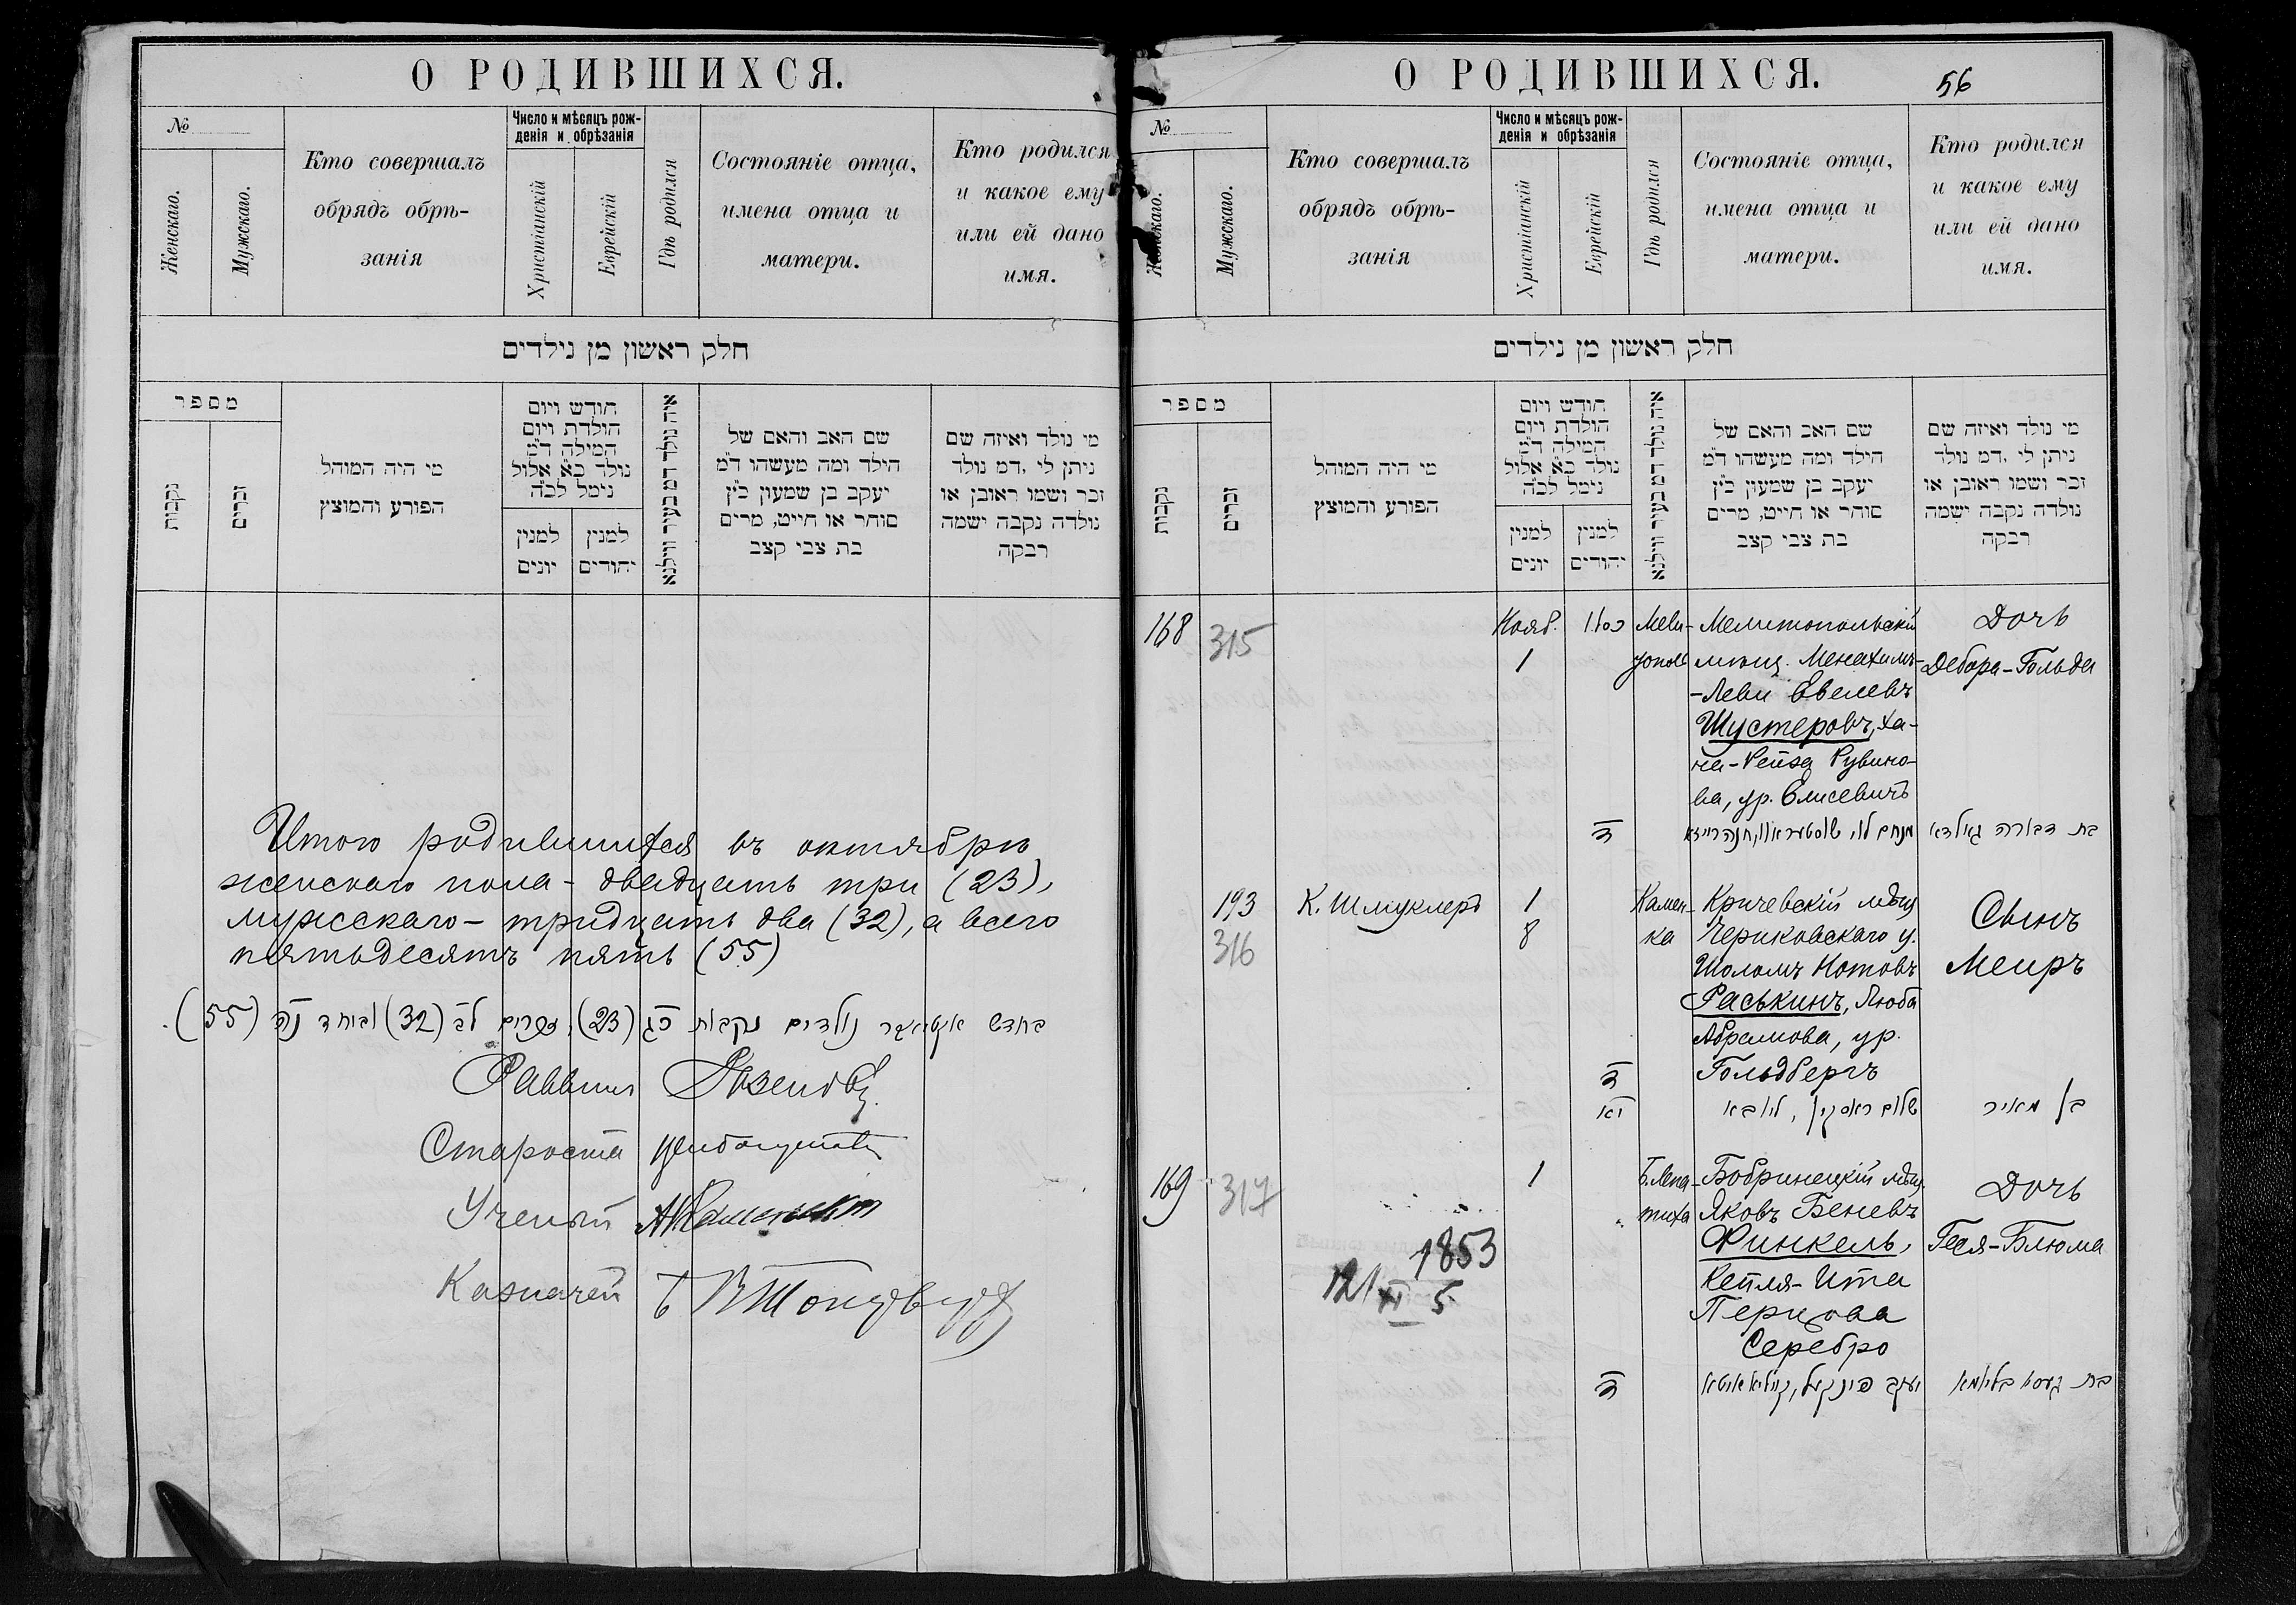 О РОДИВШИХСЯ.
№
Женскаго.
Мужскаго.
Кто совершалъ
обрядъ обрѣ-
занія
Число и мѣсяцъ рож-
денія и обрѣзанія
Христіанскій
Еврейскій
Годъ родился
Состояніе отца,
имена отца и
матери.
Кто родился
и какое ему
или ей дано
имя.
חלק ראשון מן נילדים
מספר
נקבות
זכרים
מי היה המוהל
הפורע והמוצץ
חודש ויום
הולדת ויום
המילה ד"מ
נולד כ"א אלול
נימל לכ"ה
למנין
יונים
למנין
יהודים
איה נולד דמ בעיר ווילנא
שם האב והאם של
הילד ומה מעשהו ד"מ
יעקב בן שמעון כ"ץ
סוחר או חייט, מרים
בת צבי קצב
מי נולד ואיזה שם
ניתן לי, דמ נולד
זכר ושמו ראובן או
נולדה נקבה ישמה
רבקה
Итого родившихся въ октябрѣ
женскаго пола - двадцать три (23),
мужскаго - тридцать два (32), а всего
пятьдесятъ пять (55)
בחדש אקטיאבר נולדים נקבות כג (23), זכרים לב (32) וביחד נה (55).
Раввинъ
Староста
Ученый
Казначей
О РОДИВШИХСЯ.
56
№
Женскаго.
Мужскаго.
Кто совершалъ
обрядъ обрѣ-
занія
Число и мѣсяцъ рож-
денія и обрѣзанія
Христіанскій
Еврейскій
Годъ родился
Состояніе отца,
имена отца и
матери.
Кто родился
и какое ему
или ей дано
имя.
חלק ראשון מן נילדים
מספר
נקבות
זכרים
מי היה המוהל
הפורע והמוצץ
חודש ויום
הולדת ויום
המילה ד"מ
נולד כ"א אלול
נימל לכ"ה
למנין
יונים
למנין
יהודים
איה נולד דמ בעיר ווילנא
שם האב והאם של
הילד ומה מעשהו ד"מ
יעקב בן שמעון כ"ץ
סוחר או חייט, מרים
בת צבי קצב
מי נולד ואיזה שם
ניתן לי, דמ נולד
זכר ושמו ראובן או
נולדה נקבה ישמה
רבקה
168
315
Нояб.
1
כסלו
Мели-
тополь
Мелитопольскій
мѣщ. Менахимъ-
-Леви Евелевъ
Шустеровъ, Ха-
на-Рейза Рувино-
ва, ур. Елисевичъ
Дочь
Дебора-Гольда
ה
מנחם לוי שוסטעראוו, חנה רייזא
בת דבורה גאלדא
193
316
К. Шмуклеръ
1
8
Камен-
ка
Кричевскій мѣщ.
Чериковскаго у.
Шоломъ Нотовъ
Раськинъ, Люба
Абрамова, ур.
Гольдбергъ
Сынъ
Меиръ
ה
יא
שלום ראסקין, ליובא
בן מאיר
169
317
1
Б. Лепа-
тиха
Бобринецкій мѣщ.
Яковъ Беневъ
Финкель,
Кейля-Ита
Перцова
Серебро
Дочь
Геся-Блюма
1853
121 XI 5
ה
יעקב פינקעל, קיילא איטא
בת געסא בליומא